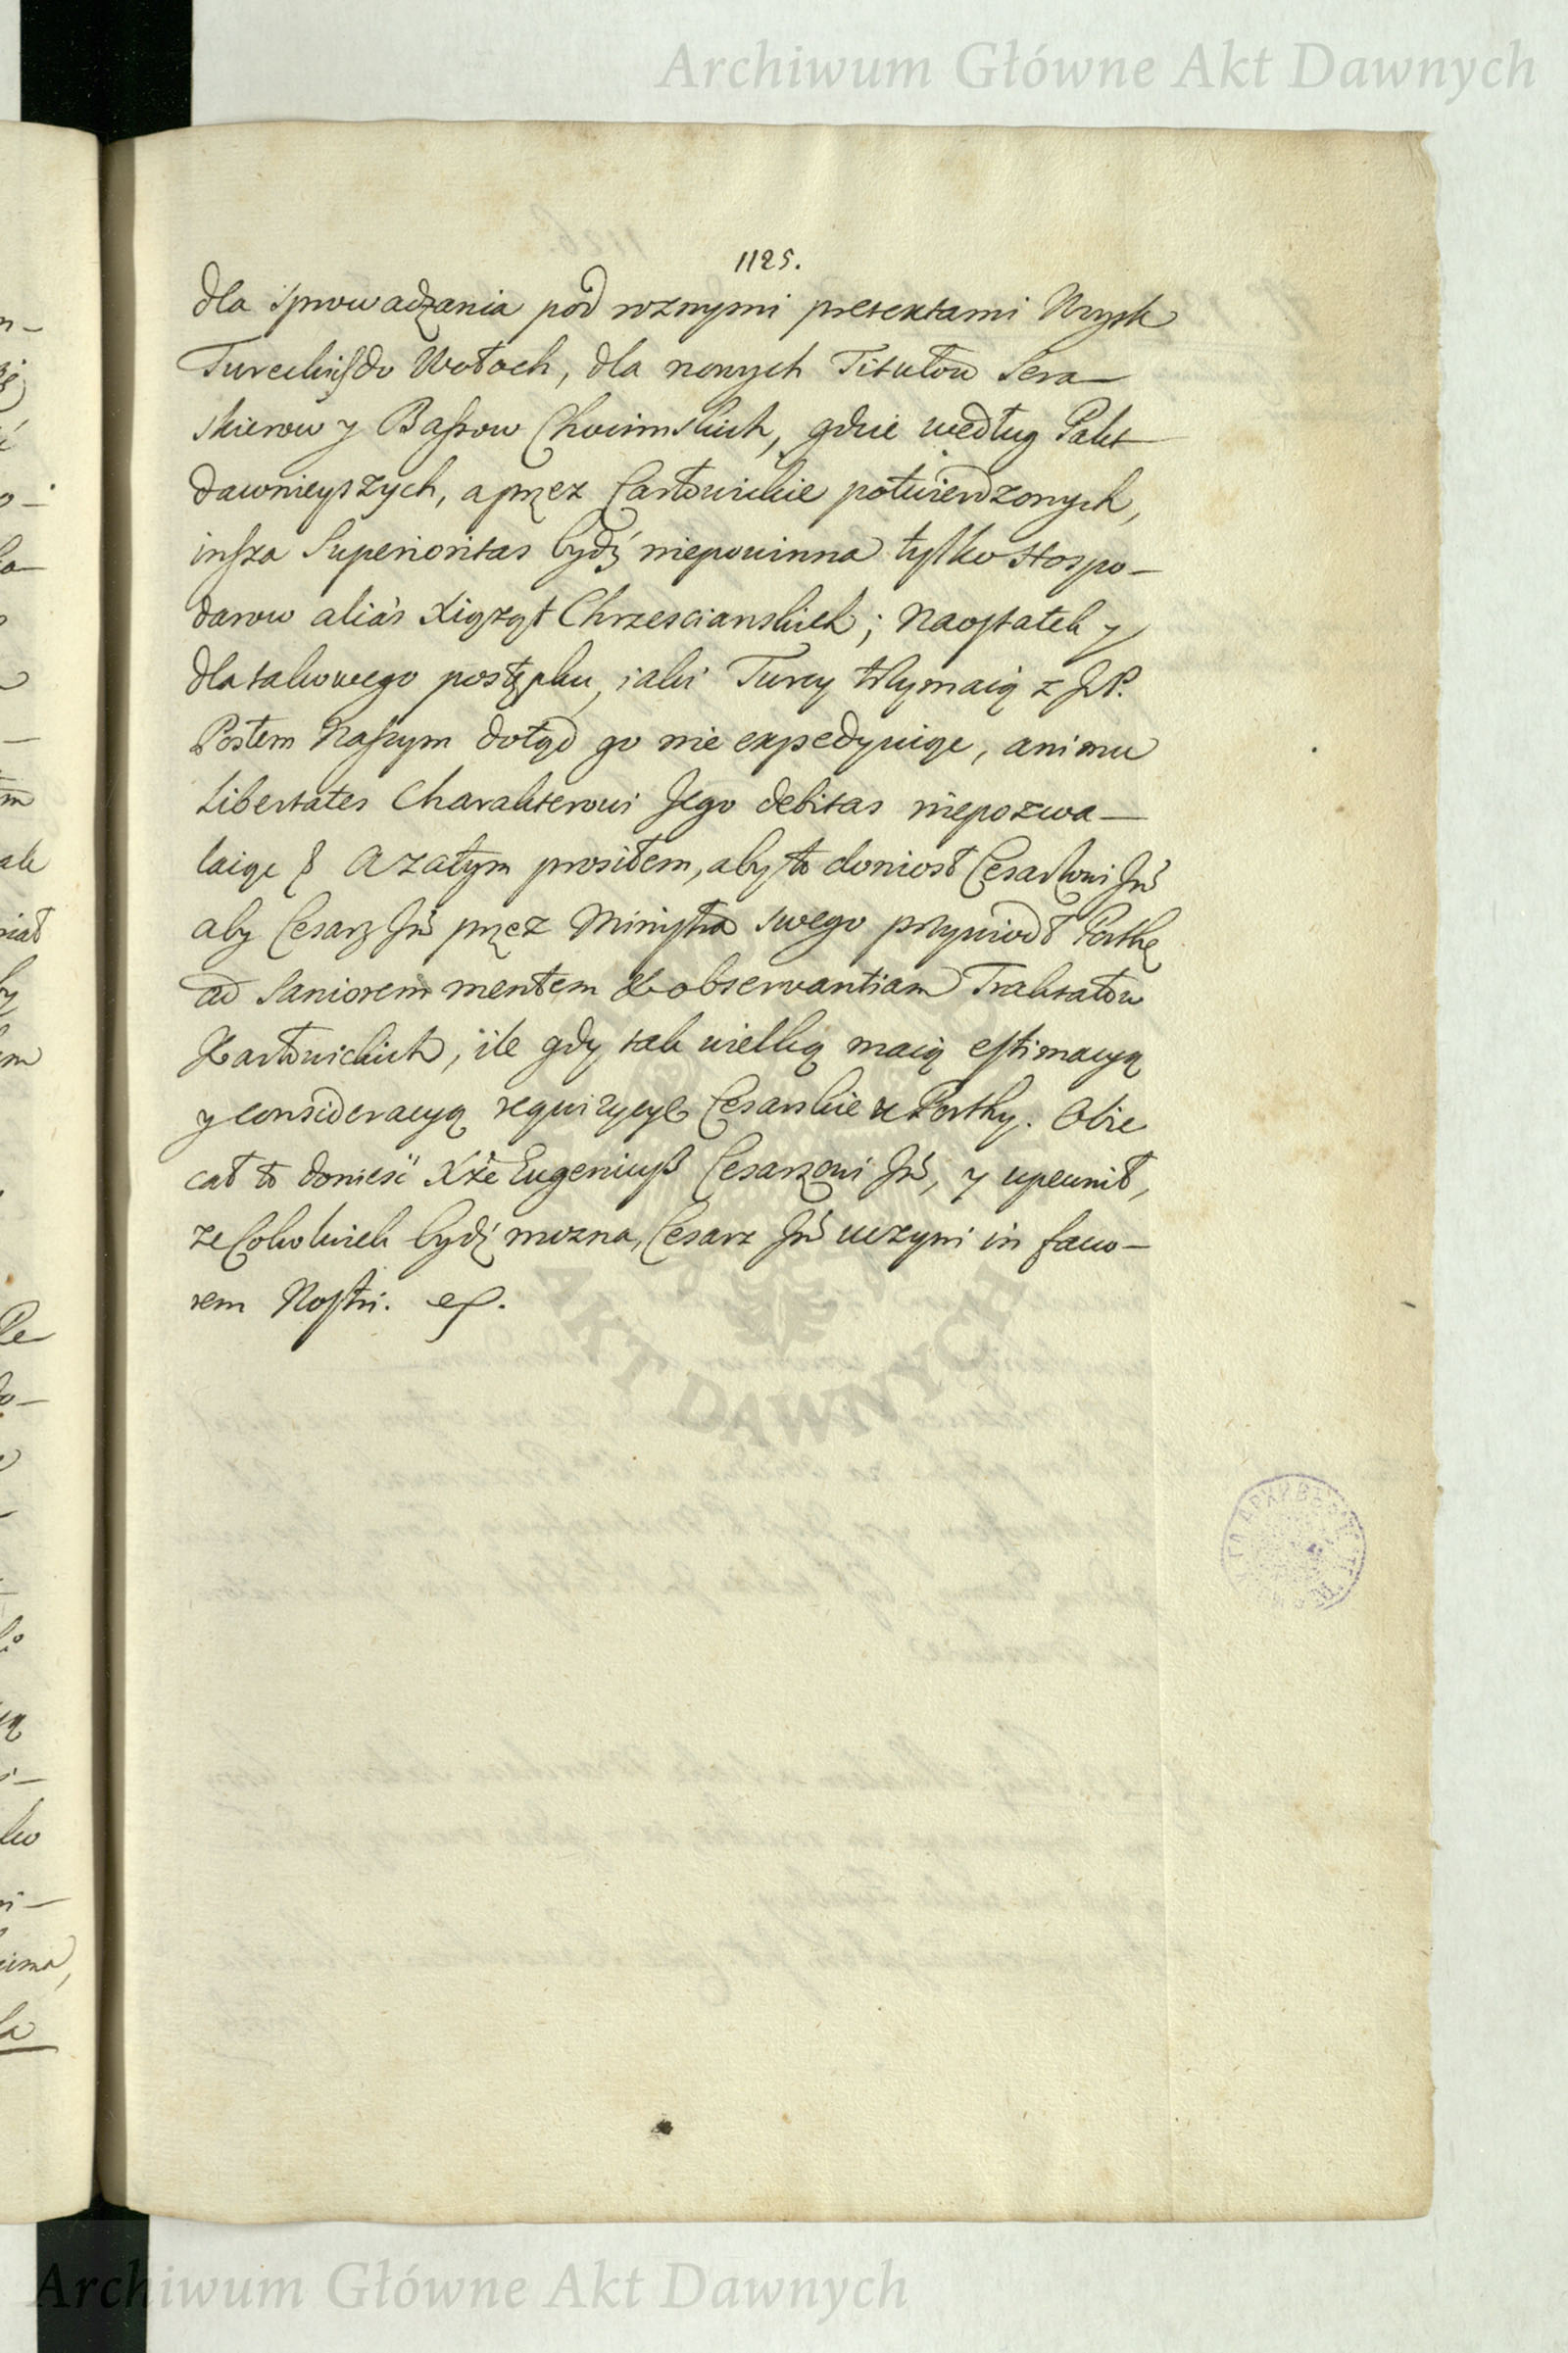 Archiwum Główne Akt Dawnych
1125.
dla sprowadzania pod roznymi pretextami Woysk
Tureckich do Wołoch, dla nowych Titułow Sera—
skierow y Baszow Chocimskich, gdzie według Pakt
dawnieyszych, a przez Carłowickie potwierdzonych,
insza Superioritas bydź niepowinna tylko Hospo—
darow aliàs Xiąząt Chrzescianskich; Naostatek y
dla takowego postępku, jaki Turcy trzymaią z J.P.
Posłem Naszym dotąd go nie expedyuiąc, ani mu
Libertates Charakterowi Jego debitas niepozwa—
laiąc & A zatym prosiłem, aby to doniosł Cesarzowi Jmć
aby Cesarz Jmć przez Ministra swego przywiodł Porthę
ad saniorem mentem & observantiam Traktatow
Karłowickich, ile gdy tak wielką maią estimacyą
y consideracyą requizycye Cesarskie u Porthy. Obie
cał to donieść Xże Eugeniusz Cesarzowi Jmć, y upewnił,
ze Cokolwiek bydź mozna, Cesarz Jmć uczyni in favo—
rem Nostri. etc.
AKT DAWNYCH
Archiwum Główne Akt Dawnych